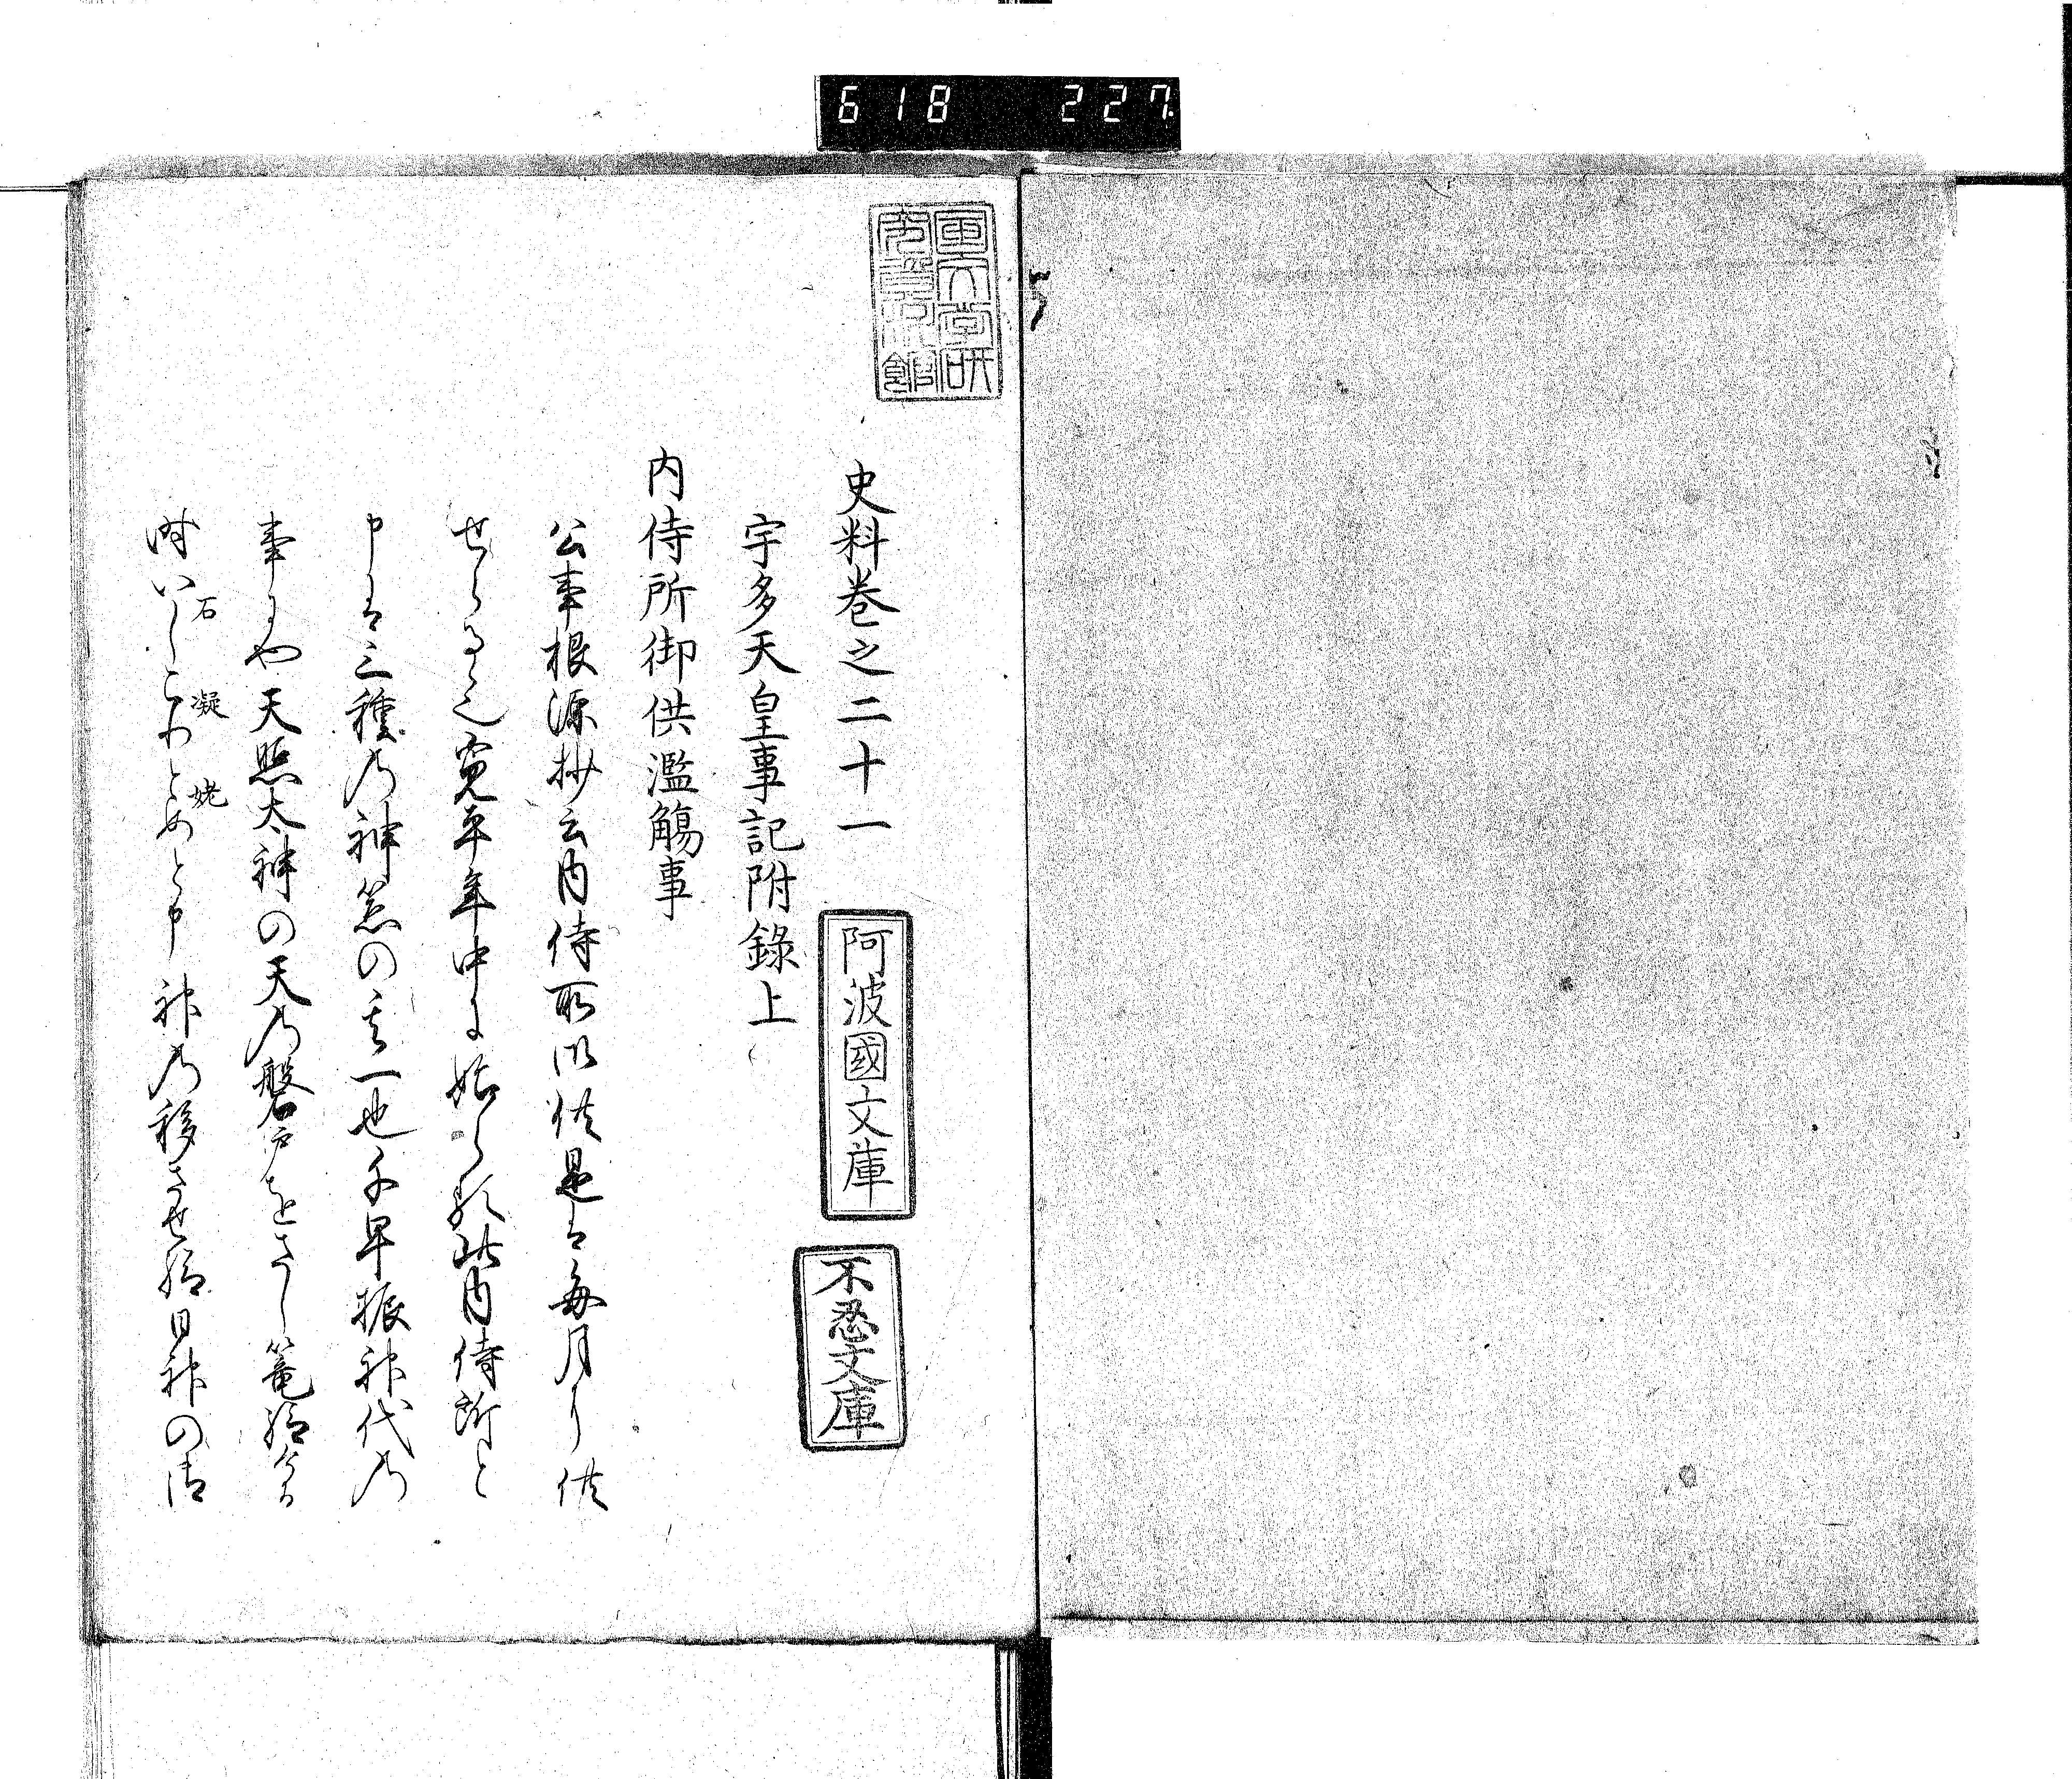 618 227
史料巻之二十一
阿波國文庫
不忍文庫
宇多天皇事記附錄上
内侍所御供濫觴事
公事根源抄云内侍所御供是は毎月に供
せらるゝ也寛平年中に始らる此内侍所と
申は三種の神器の其一也千早振神代の
事にや天照太神の天の磐戸をさし篭給ひ
石 凝 姥
時いしこりとめと申神の移させ給日神の御